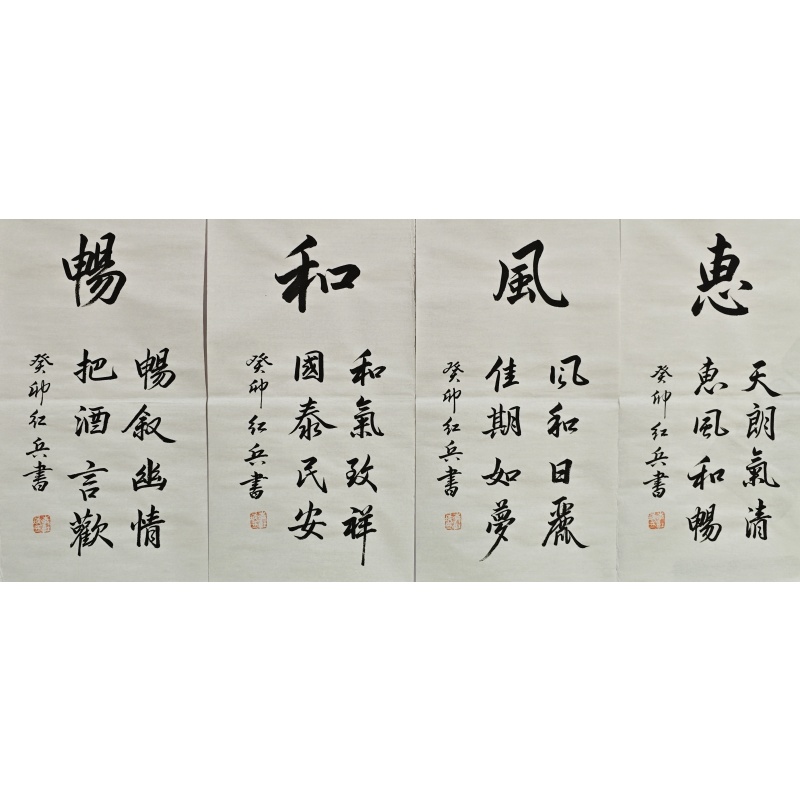 惠
天朗氣清
惠風和暢
癸卯紅兵書
風
風和日麗
佳期如夢
癸卯紅兵書
和
和氣致祥
國泰民安
癸卯紅兵書
暢
暢叙幽情
把酒言歡
癸卯紅兵書